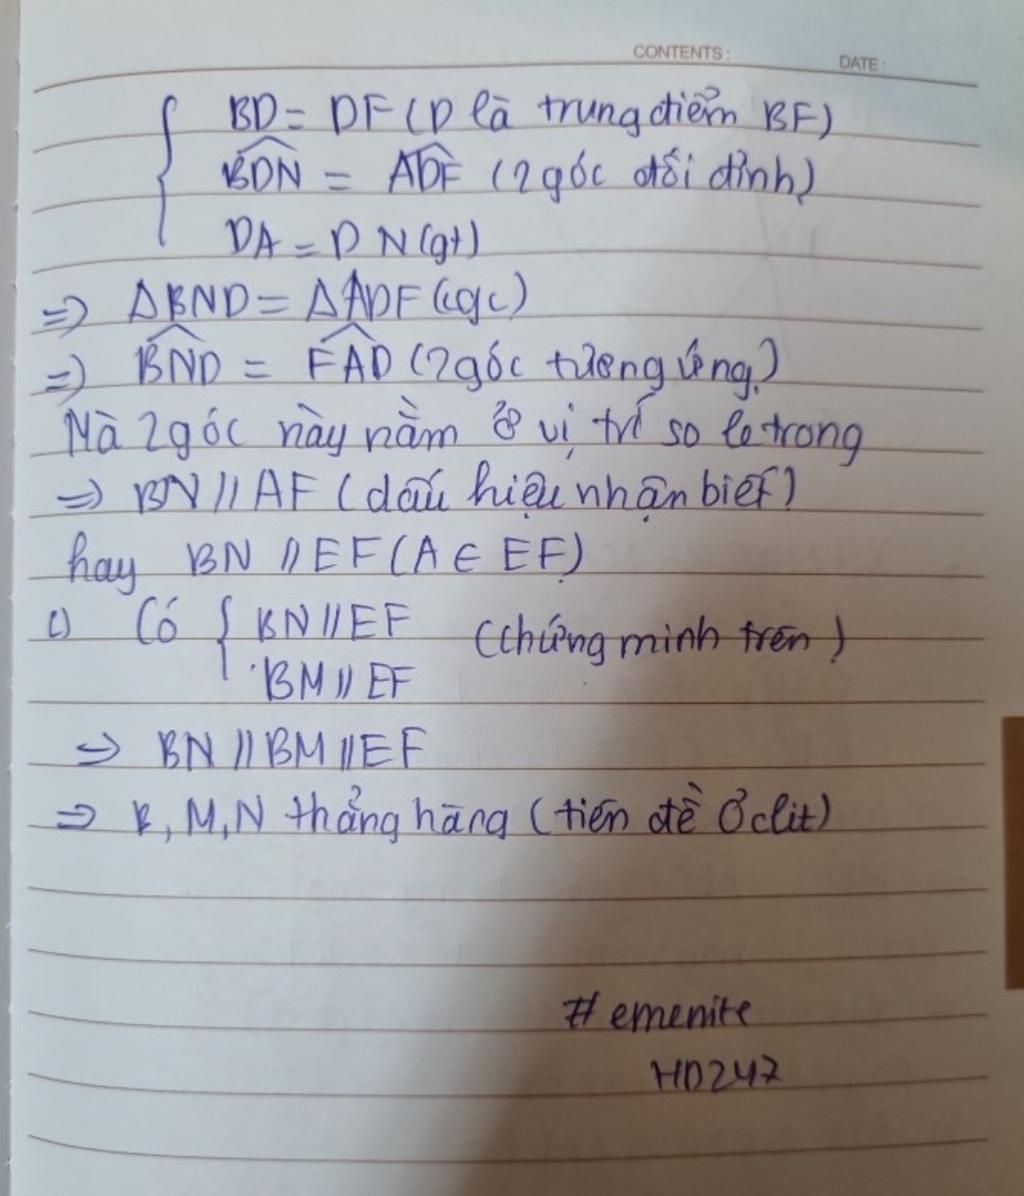 CONTENTS:
DATE:
BD = DF (D là trung điểm BF)
BDN = ADF (2 góc đối đỉnh)
DA = DN (gt)
=> ΔBND = ΔADF (cgc)
=> BND = FAD (2 góc tương ứng)
Mà 2 góc này nằm ở vị trí so le trong
=> BN // AF (dấu hiệu nhận biết)
hay BN // EF (A ∈ EF)
c) Có { BN // EF (chứng minh trên)
BM // EF
=> BN // BM // EF
=> B, M, N thẳng hàng (tiên đề Ơclit)
# emenite
HD247